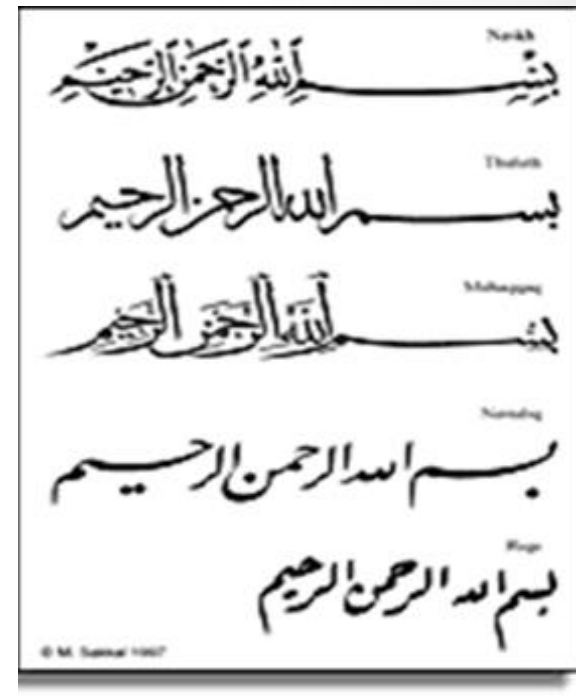 Naskh
بِسْمِ اللهِ الرَّحْمٰنِ الرَّحِيْمِ
Thuluth
بسم الله الرحمن الرحيم
Muhaqqaq
بِسْمِ اللهِ الرَّحْمٰنِ الرَّحِيْمِ
Nastaliq
بسم الله الرحمن الرحيم
Riqa
بسم الله الرحمن الرحيم
© M. Sakkal 1997